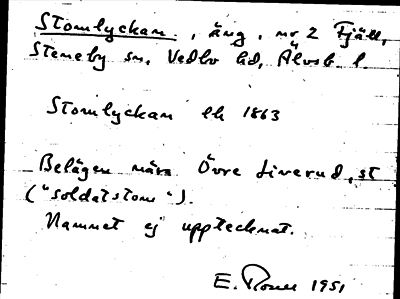 Stomlyckan, äng, nr 2 Fjäll,
Steneby sn, Vedbo hd, Älvsb. l.
Stomlyckan lh 1863
Belägen nära Övre Liverud, st
("soldatstom").
Namnet ej upptecknat.
E. 1951